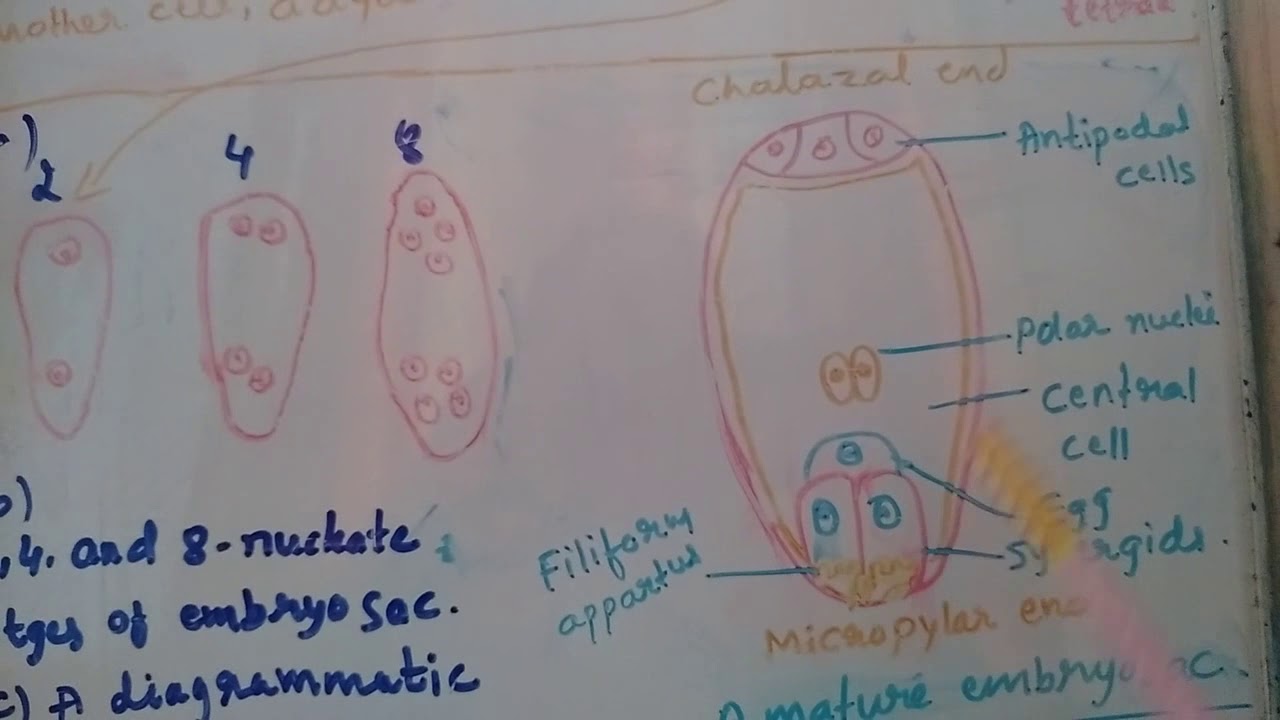 mother cell,
Chalazal end
2
4
8
Antipodal
cells
Polar nuclei
central
cell
Egg
Filiform
appartus
Micropylar end
4. and 8-nuckate
of embryo sac.
c) A diagrammatic
A mature embryo